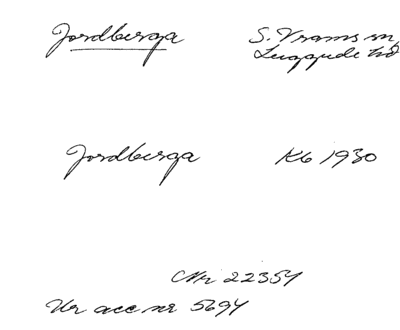 Jordberga S. Vrams sn,
Luggude hd
Jordberga Kb 1930
Nr 22354
Ur acc nr 5694